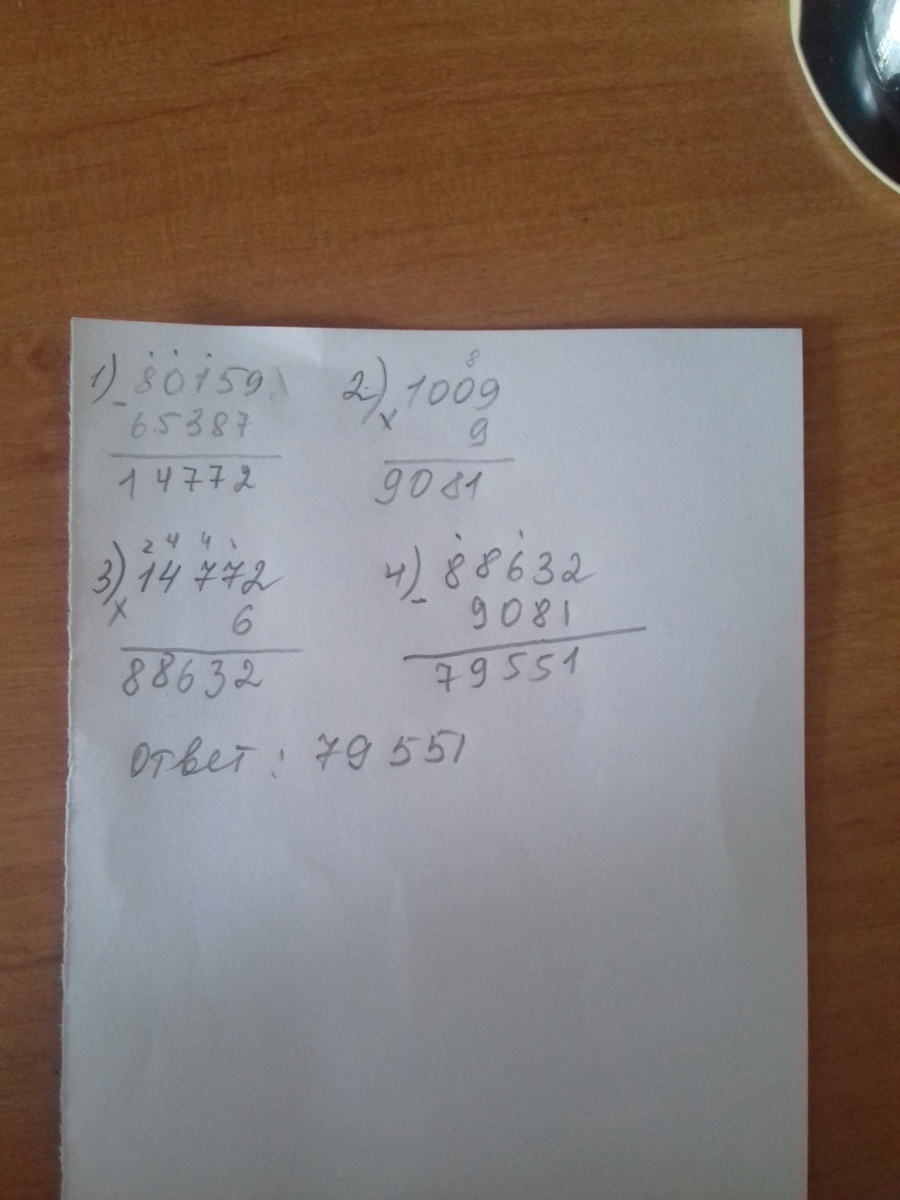 1) 80159
- 65387
14772
2.) 8
1009
× 9
9081
3) 2 4 4 1
14772
× 6
88632
4) 88632
- 9081
79551
Ответ: 79551